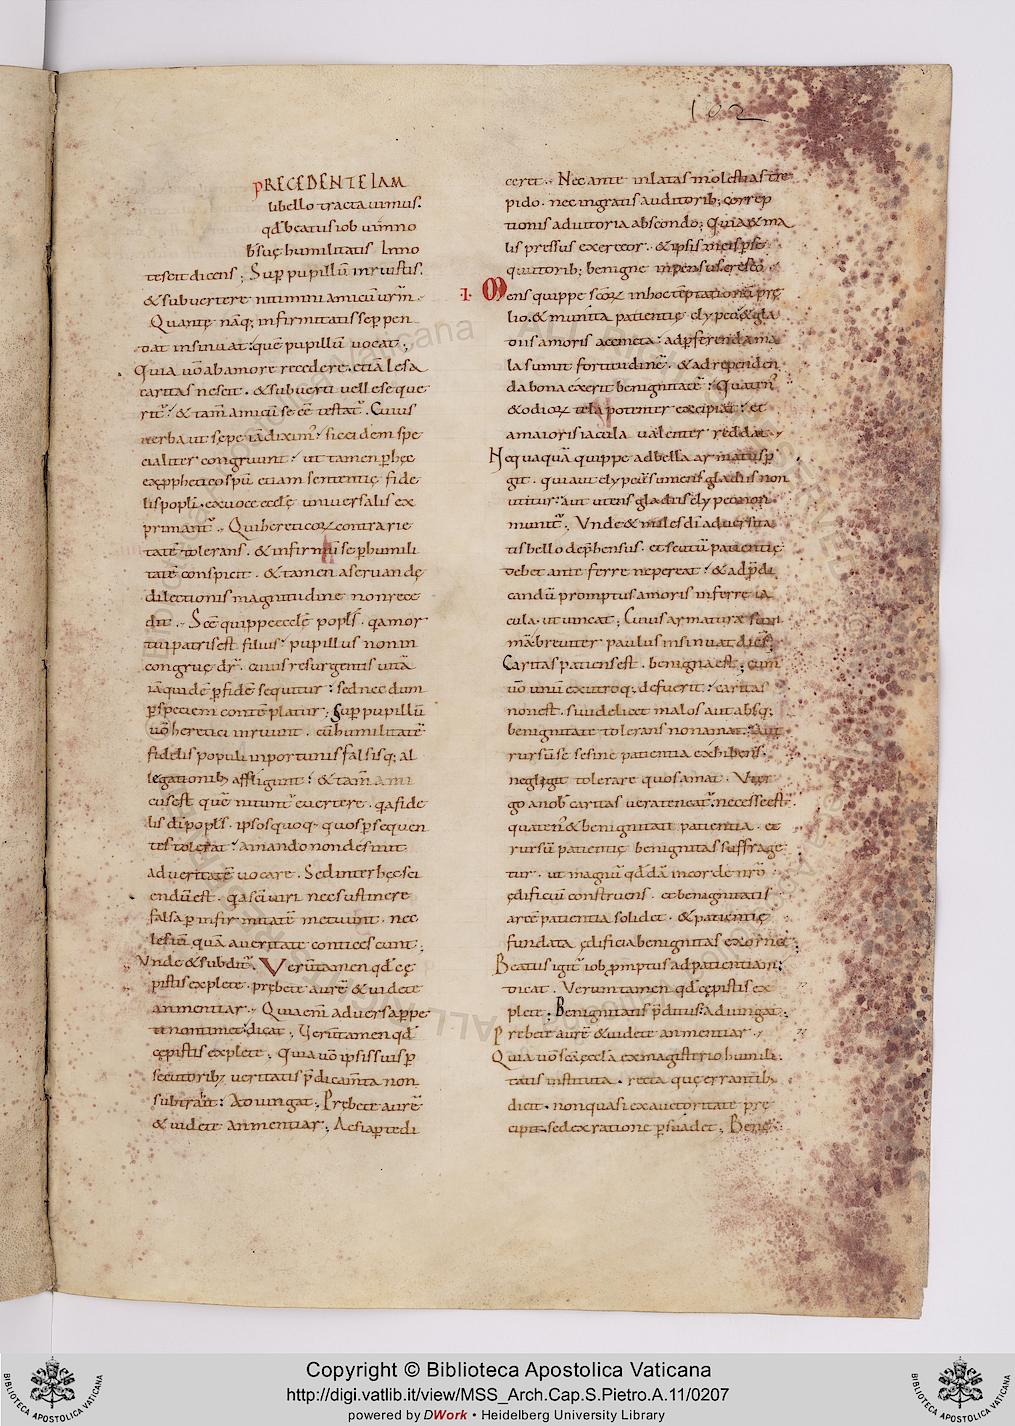 102
PRECEDENTE IAM
libello tractavimus.
qđ beatus iob uı nno
bsuę humilitatis Inno
tescit dicens; Sup pupillū inruistis.
& subvertere nitimini amicū urm̄.
Quantę nāq; infirmitatis se ppen
dat insinuat: quē pupillū vocat;
Quia uō ab amore recedere etiā lesa
caritas nescit. & subverti velle se que
ritˀ. & tam̄ amicū se eē testatˀ. Cuius
verba ut sepe iā diximˀ. sic eidem spe
cialiter congruunt: ut tamen p hęc
ex pphetico spū etiam sententię fide
lis popli. ex voce ecclę universalis ex
primantˀ. Qui hereticoꝝ contrarie
tatē tolerans. & infirmū se p humili
tatē conspicit. & tamen a servandę
dilectionis magnitudine non rece
dit. Scē quippe ecclę popls. q a mor
tui patris est filius: pupillus non in
congruę dr̄. cuius resurgentis vitā
iā quidē p fidē sequitur: sed necdum
p speciem contēplatur; Sup pupillū
uō heretici inruunt. cū humilitatē
fidelis populi inportunis falsisq; al
legationib; affligunt: & tam̄ ami
cus est quē nituntˀ evertere. q a fide
lis dī popls. ipsos quoq; quos p sequen
tes tolerat: amando non desinit
ad veritatē vocare. Sed inter hęc sci
endū est. q a sc̄i viri nec sustinere
falsa p infirmitatē metuunt. nec
lesi umquā a veritate conticescunt;
Unde & subditˀ. Verūtamen qđ cę
pistis explete. prębete aurē & videte
an mentiar. Quia enī adversa ppe
ti non timet: dicat; Verūtamen qđ
cępistis explete; Quia uō ipsis suis p
secutorib; veritatis p̄dicam̄ta non
subtrait: adiungat; Prębete aurē
& videte an mentiar; Ac si apte di
ceret. Nec ante inlatas molestias tre
pido. nec ingratis auditorib; correp
tionis adiutoria abscondo; Quia & ma
lis pressus exerceor. & ipsis meis p se
quutorib; benigne inpensus cresco.
I. Mens quippe sc̄oꝝ in hoc tēptationū prę
lio. & munita patientię clypeo & gla
diis amoris accincta: ad p ferenda ma
la sumit fortitudinē. & ad rependen
da bona exerit benignitatē: Quatenˀ
& odioꝝ tela potenter excipiat: et
amoris iacula valenter reddat.
Nequaquā quippe ad bella armatus p
git. qui aut clypeū sumens gladiis non
utitur: aut utens gladiis clypeo non
munitˀ. Unde & miles dī adversita
tis bello dep̄hensus. et scutū patientię
debet ante ferre ne pereat: & ad p̄di
candū promptus amoris inferre ia
cula. ut vincat; Cuius armaturę sum
mā breviter paulus insinuat dicēs;
Caritas patiens est. benigna est; cum
uō unū ex utroq; defuerit: caritas
non est. si videlicet malos aut absq;
benignitate tolerans non amat: Aut
rursus se sine patientia exhibens.
neglegit tolerare quos amat. Ut er
go a nob̄ caritas vera teneatˀ. necesse est.
quatenˀ & benignitati patientia. et
rursū patientię benignitas suffrage
tur. ut magnū qđ dā in corde nr̄o
ędificiū construens. et benignitatis
arcē patientia solidet. & patientię
fundata ędificia benignitas exornet;
Beatus igitˀ iob p̄mptus ad patientiam;
dicat. Veruntamen qđ cępistis ex
plete; Benignitatis p̄ditus: adiungat;
Prebete aurē & videte an mentiar.
Quia uō sc̄a ęccla ex magisterio humili
tatis instituta. recta quę errantib;
dicit. non quasi ex auctoritate prę
cipit. sed ex ratione p suadet; Bene
Copyright © Biblioteca Apostolica Vaticana
http://digi.vatlib.it/view/MSS_Arch.Cap.S.Pietro.A.11/0207
powered by DWork • Heidelberg University Library
BIBLIOTECA APOSTOLICA VATICANA
BIBLIOTECA APOSTOLICA VATICANA